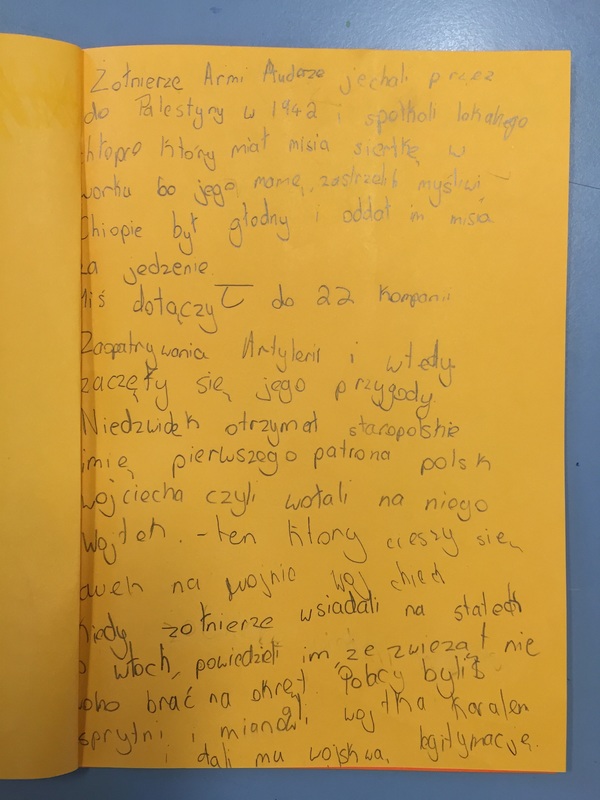 Żołnierze Armi Andersa jechali przez
do Palestyny w 1942 i spotkali lokalnego
chłopre który miał misia sierotkę w
worku bo jego mamę zastrzelili myśliwi
Chłopie był głodny i oddał im misia
za jedzenie
Miś dołączył do 22 Kompanii
Zaopatrywania Artylerii i wtedy
zaczęły się jego przygody.
Niedzwidek otrzymał staropolskie
imię pierwszego patrona polsk
wojciecha czyli wołali na niego
Wojtek. - ten ktory cieszy się
na wojnie woj
kiedy żołnierze wsiadali na statek
włoch, powiedzieli im, że zwierząt nie
brać na okręt. Polacy byli
sprytni i mianowali wojtka Karalem
i dali mu wojskwa legitymację.